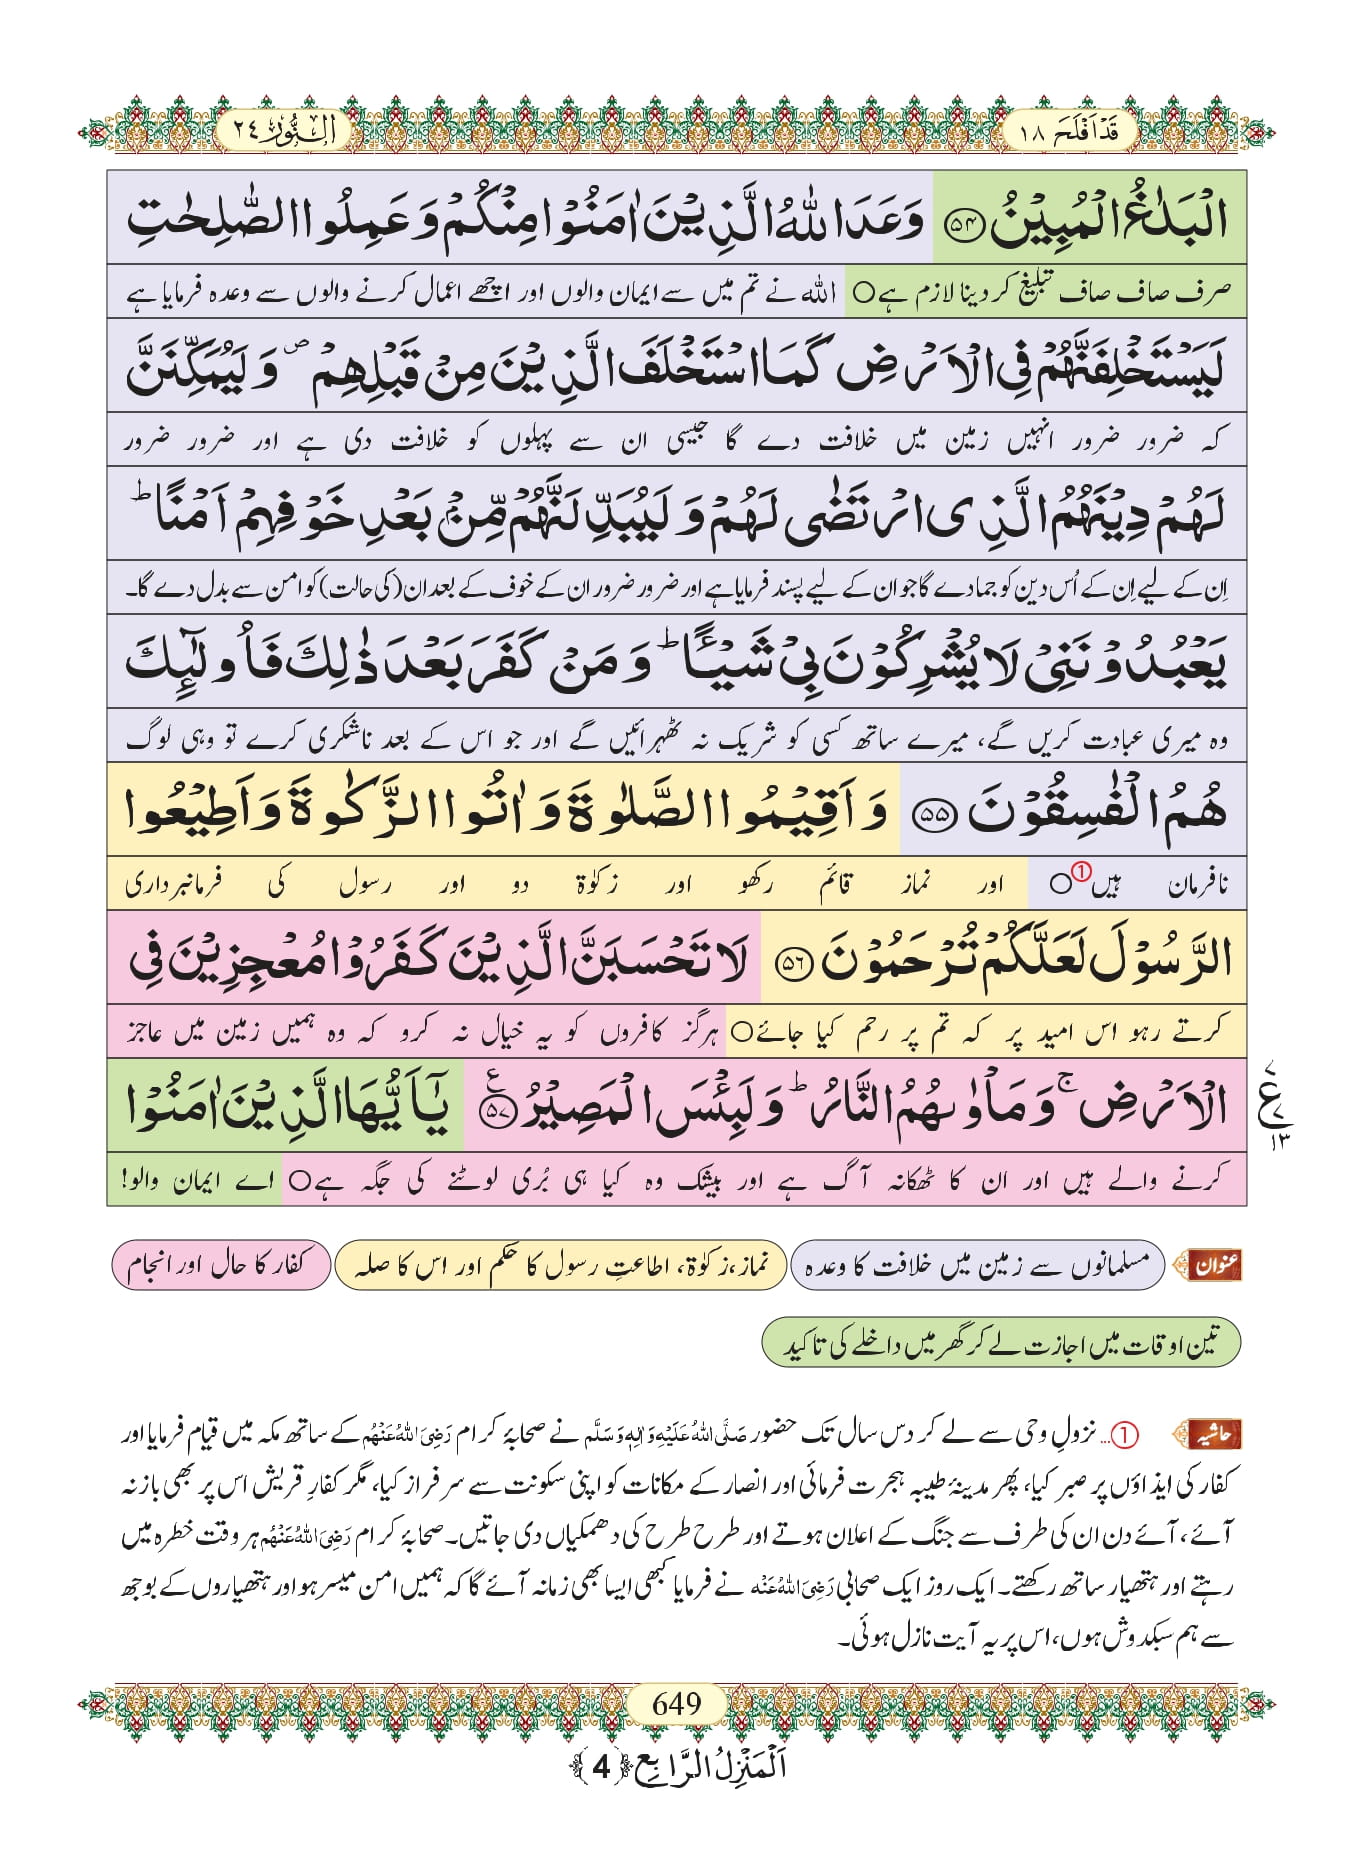 قَدْ اَفْلَحَ ١٨
اَلنُّوْر ٢٤
الْبَلٰغُ الْمُبِیْنُ ﴿۵۴﴾ وَعَدَ اللّٰهُ الَّذِیْنَ اٰمَنُوْا مِنْكُمْ وَ عَمِلُوا الصّٰلِحٰتِ
صرف صاف صاف تبلیغ کر دینا لازم ہے○ اللہ نے تم میں سے ایمان والوں اور اچھے اعمال کرنے والوں سے وعدہ فرمایا ہے
لَیَسْتَخْلِفَنَّهُمْ فِی الْاَرْضِ كَمَا اسْتَخْلَفَ الَّذِیْنَ مِنْ قَبْلِهِمْ ۪ وَ لَیُمَكِّنَنَّ
کہ ضرور ضرور انہیں زمین میں خلافت دے گا جیسی ان سے پہلوں کو خلافت دی ہے اور ضرور ضرور
لَهُمْ دِیْنَهُمُ الَّذِی ارْتَضٰى لَهُمْ وَ لَیُبَدِّلَنَّهُمْ مِّنْۢ بَعْدِ خَوْفِهِمْ اَمْنًا ؕ
اِن کے لیے اِن کے اُس دین کو جما دے گا جو ان کے لیے پسند فرمایا ہے اور ضرور ضرور ان کے خوف کے بعد ان (کی حالت) کو امن سے بدل دے گا۔
یَعْبُدُوْنَنِیْ لَا یُشْرِكُوْنَ بِیْ شَیْـًٔا ؕ وَ مَنْ كَفَرَ بَعْدَ ذٰلِكَ فَاُولٰٓىٕكَ
وہ میری عبادت کریں گے، میرے ساتھ کسی کو شریک نہ ٹھہرائیں گے اور جو اس کے بعد ناشکری کرے تو وہی لوگ
هُمُ الْفٰسِقُوْنَ ﴿۵۵﴾ وَ اَقِیْمُوا الصَّلٰوةَ وَ اٰتُوا الزَّكٰوةَ وَ اَطِیْعُوا
نافرمان ہیں①○ اور نماز قائم رکھو اور زکوٰۃ دو اور رسول کی فرمانبرداری
الرَّسُوْلَ لَعَلَّكُمْ تُرْحَمُوْنَ ﴿۵۶﴾ لَا تَحْسَبَنَّ الَّذِیْنَ كَفَرُوْا مُعْجِزِیْنَ فِی
کرتے رہو اس امید پر کہ تم پر رحم کیا جائے○ ہرگز کافروں کو یہ خیال نہ کرو کہ وہ ہمیں زمین میں عاجز
الْاَرْضِ ۚ وَ مَاْوٰىهُمُ النَّارُ ؕ وَ لَبِئْسَ الْمَصِیْرُ ﴿۵۷﴾ ع یٰۤاَیُّهَا الَّذِیْنَ اٰمَنُوْا
٧ ع ٧ ١٣
کرنے والے ہیں اور ان کا ٹھکانہ آگ ہے اور بیشک وہ کیا ہی بُری لوٹنے کی جگہ ہے○ اے ایمان والو!
عنوان مسلمانوں سے زمین میں خلافت کا وعدہ نماز، زکوٰۃ، اطاعتِ رسول کا حکم اور اس کا صلہ کفار کا حال اور انجام
تین اوقات میں اجازت لے کر گھر میں داخلے کی تاکید
حاشیہ ①... نزولِ وحی سے لے کر دس سال تک حضور صَلَّی اللهُ عَلَیْهِ وَاٰلِهٖ وَسَلَّم نے صحابۂ کرام رَضِیَ اللهُ عَنْهُم کے ساتھ مکہ میں قیام فرمایا اور
کفار کی ایذاؤں پر صبر کیا، پھر مدینۂ طیبہ ہجرت فرمائی اور انصار کے مکانات کو اپنی سکونت سے سرفراز کیا، مگر کفارِ قریش اس پر بھی باز نہ
آئے، آئے دن ان کی طرف سے جنگ کے اعلان ہوتے اور طرح طرح کی دھمکیاں دی جاتیں۔ صحابۂ کرام رَضِیَ اللهُ عَنْهُم ہر وقت خطرہ میں
رہتے اور ہتھیار ساتھ رکھتے۔ ایک روز ایک صحابی رَضِیَ اللهُ عَنْه نے فرمایا کبھی ایسا بھی زمانہ آئے گا کہ ہمیں امن میسر ہو اور ہتھیاروں کے بوجھ
سے ہم سبکدوش ہوں، اس پر یہ آیت نازل ہوئی۔
649
اَلْمَنْزِلُ الرَّابِع ﴿4﴾